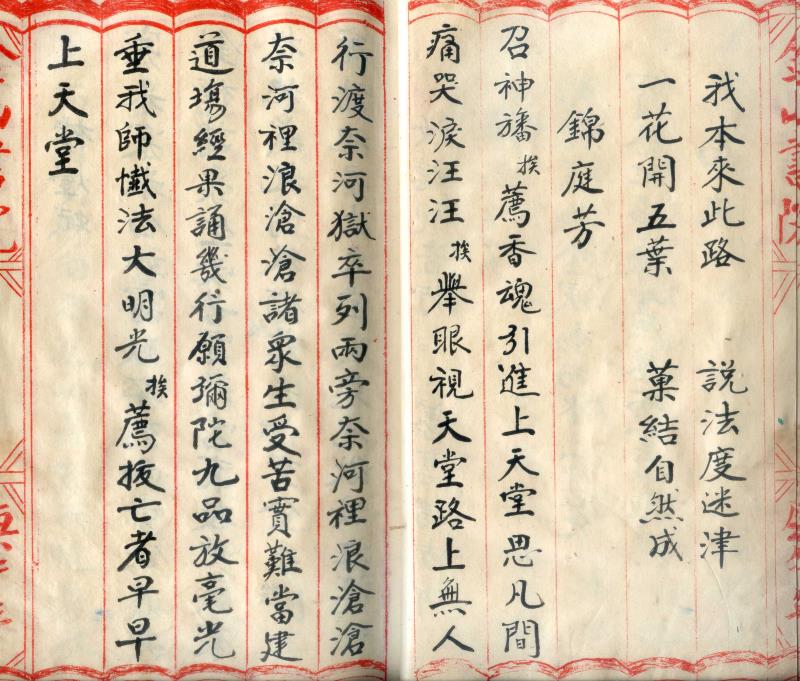 我本來此路 説法度迷津
一花開五葉 菓結自然成
錦庭芳
召神旛挨薦香魂引進上天堂思凡間
痛哭淚汪汪挨舉眼視天堂路上無人
行渡奈河獄卒列兩旁奈河裡浪滄滄
奈河裡浪滄滄諸衆生受苦實難當建
道塲經果誦幾行願彌陀九品放毫光
垂我師懴法大明光挨薦拔亡者早早
上天堂